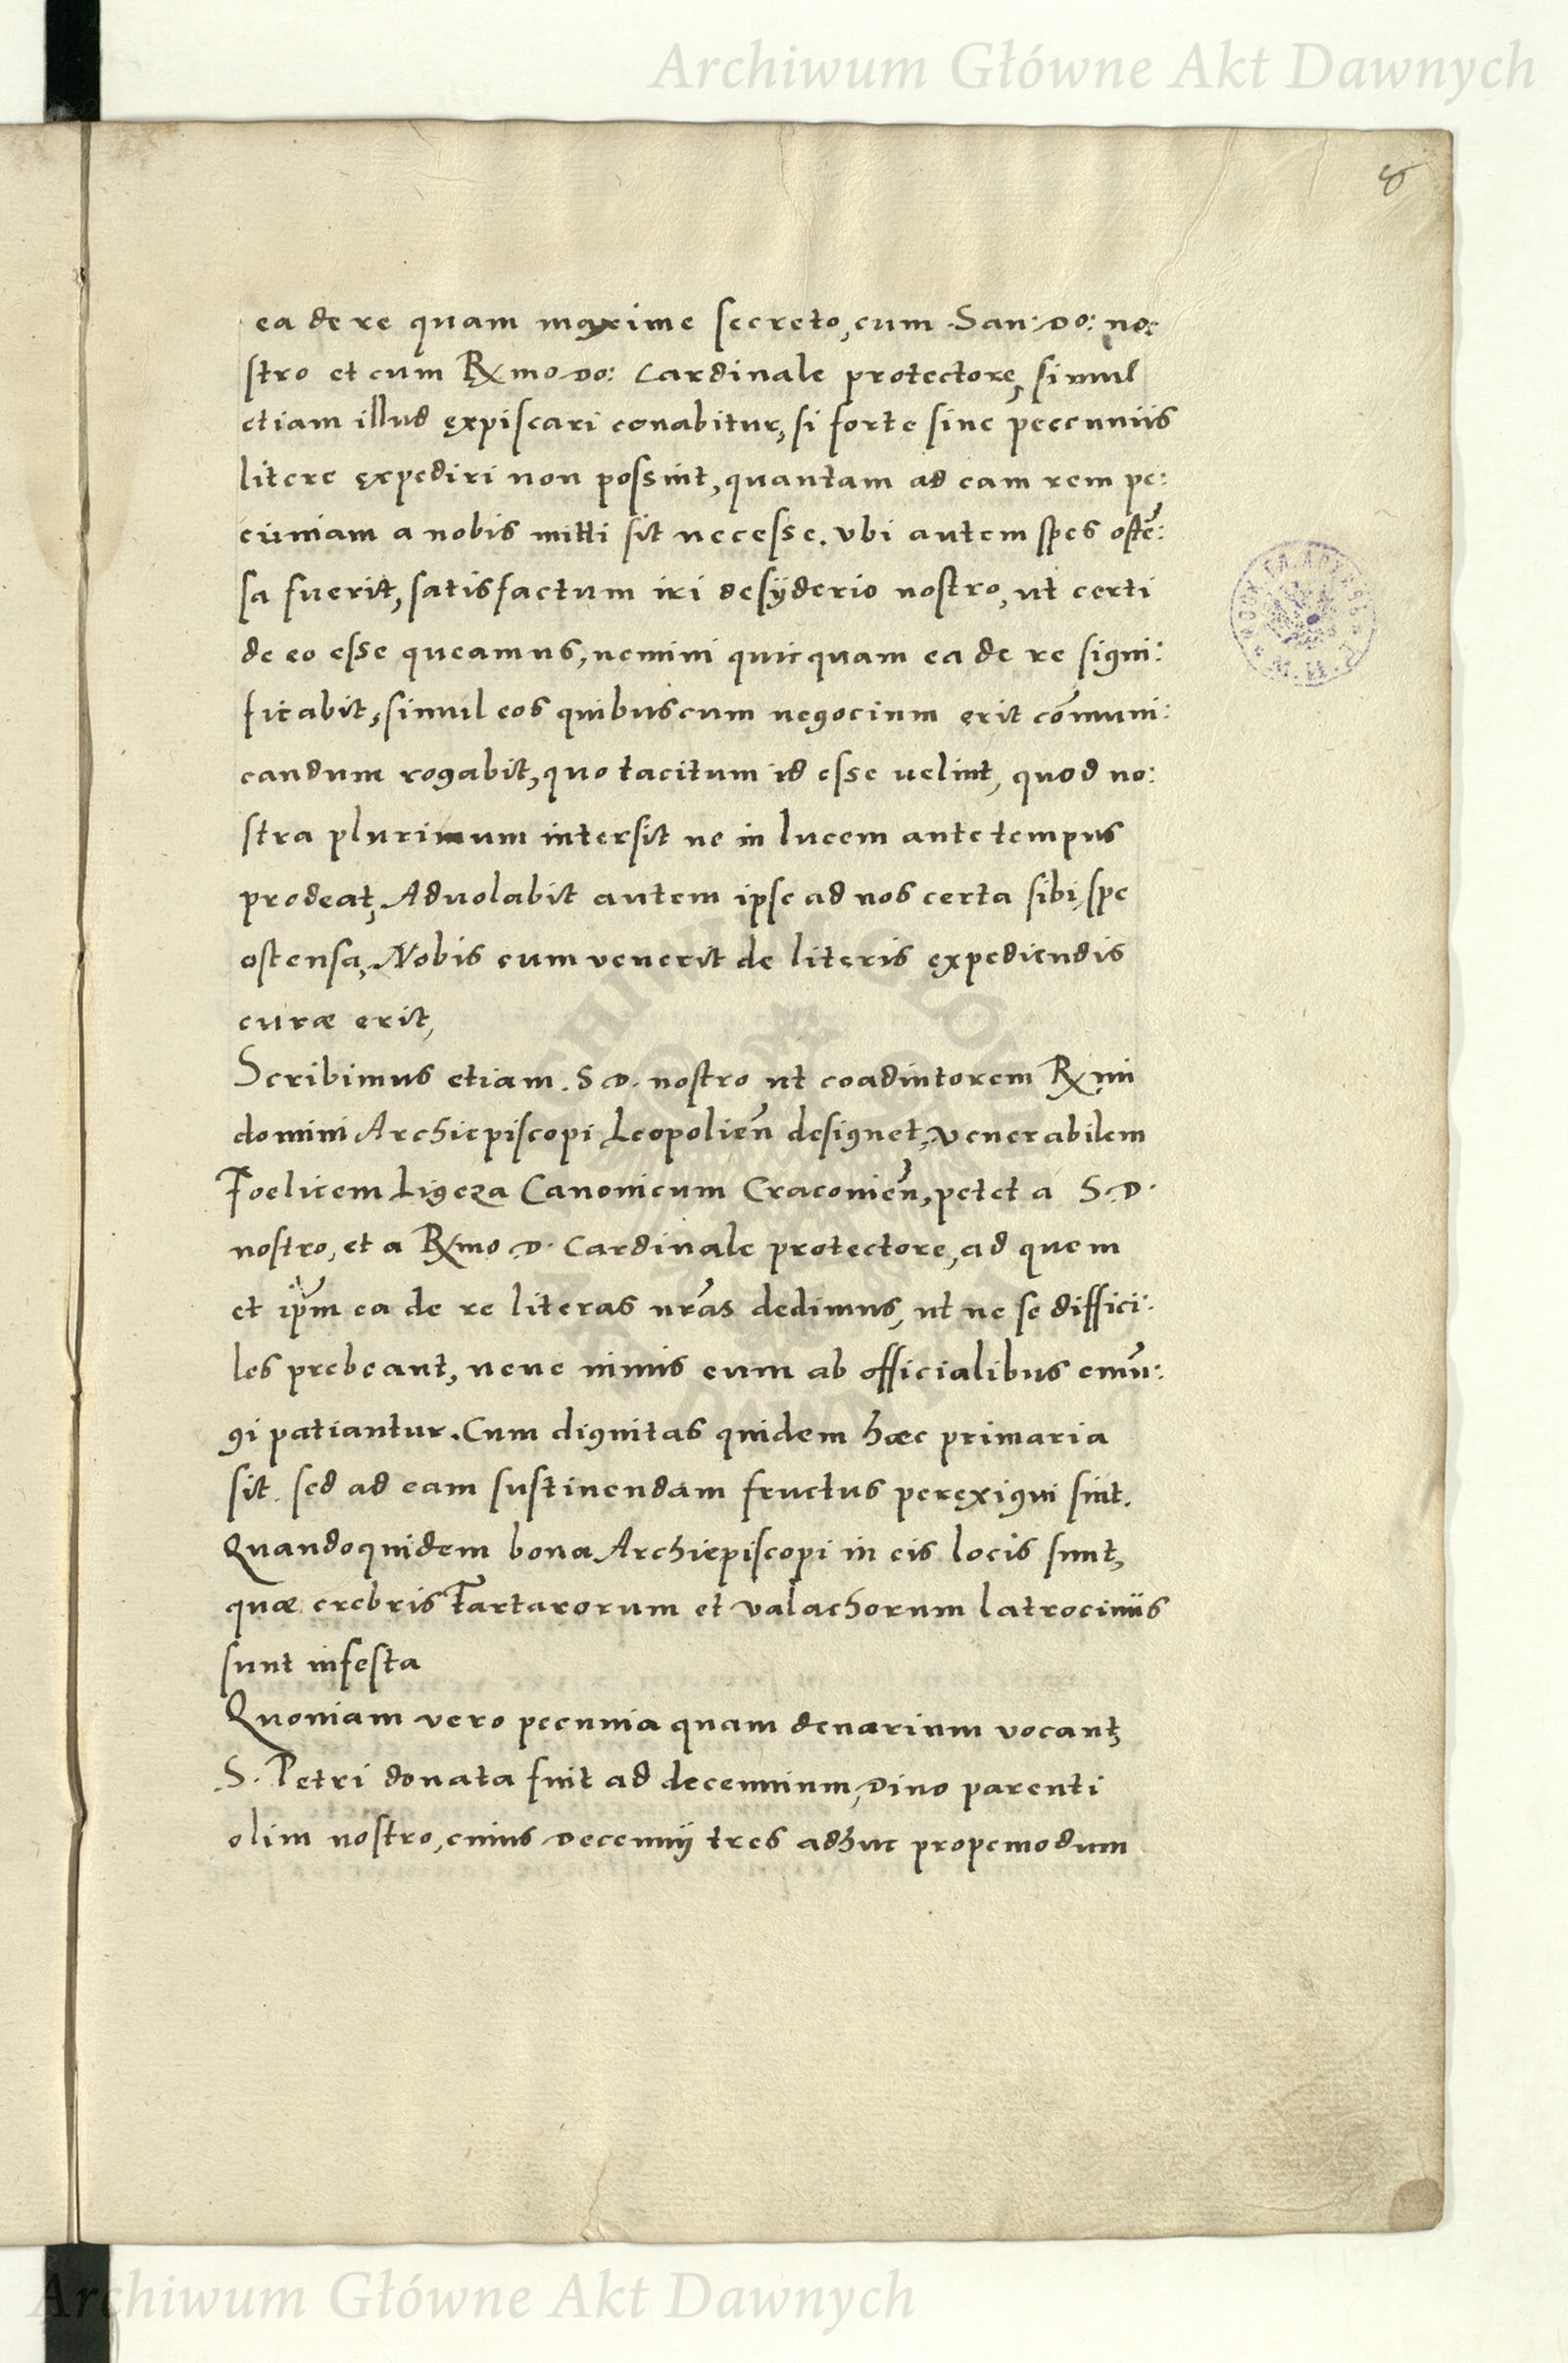 Archiwum Główne Akt Dawnych
8
ea de re quam maxime secreto, cum San: Do: no:
stro et cum Rmo Do: Cardinale protectore, simul
etiam illud expiscari conabitur, si forte sine peccuniis
litere expediri non possint, quantam ad eam rem pe:
cuniam a nobis mitti sit necesse. Vbi autem spes ostẽ:
sa fuerit, satisfactum iri desyderio nostro, ut certi
de eo esse queamus, nemini quicquam ea de re signi:
ficabit, simul eos quibuscum negocium erit cõmuni:
candum rogabit, quo tacitum id esse uelint, quod no:
stra plurimum intersit ne in lucem ante tempus
prodeat, Aduolabit autem ipse ad nos certa sibi spe
ostensa, Nobis cum venerit de literis expediendis
curæ erit,
Scribimus etiam .S D. nostro ut coadiutorem Rmi
domini Archiepiscopi Leopolieñ designet, Venerabilem
Foelicem Ligeza Canonicum Cracovieñ, petet a S. D.
nostro, et a Rmo D. Cardinale protectore, ad quem
et ip̃m ea de re literas nr̃as dedimus, ut ne se diffici:
les prebeant, neue nimis eum ab officialibus emũ:
gi patiantur. Cum dignitas quidem hæc primaria
sit. sed ad eam sustinendam fructus perexigui sint.
Quandoquidem bona Archiepiscopi in eis locis sunt,
quæ crebris Tartarorum et Valachorum latrociniis
sunt infesta
Quoniam vero pecunia quam denarium vocant
S. Petri donata fuit ad decennium, Diuo parenti
olim nostro, cuius Decennij tres adhuc propemodum
Archiwum Główne Akt Dawnych